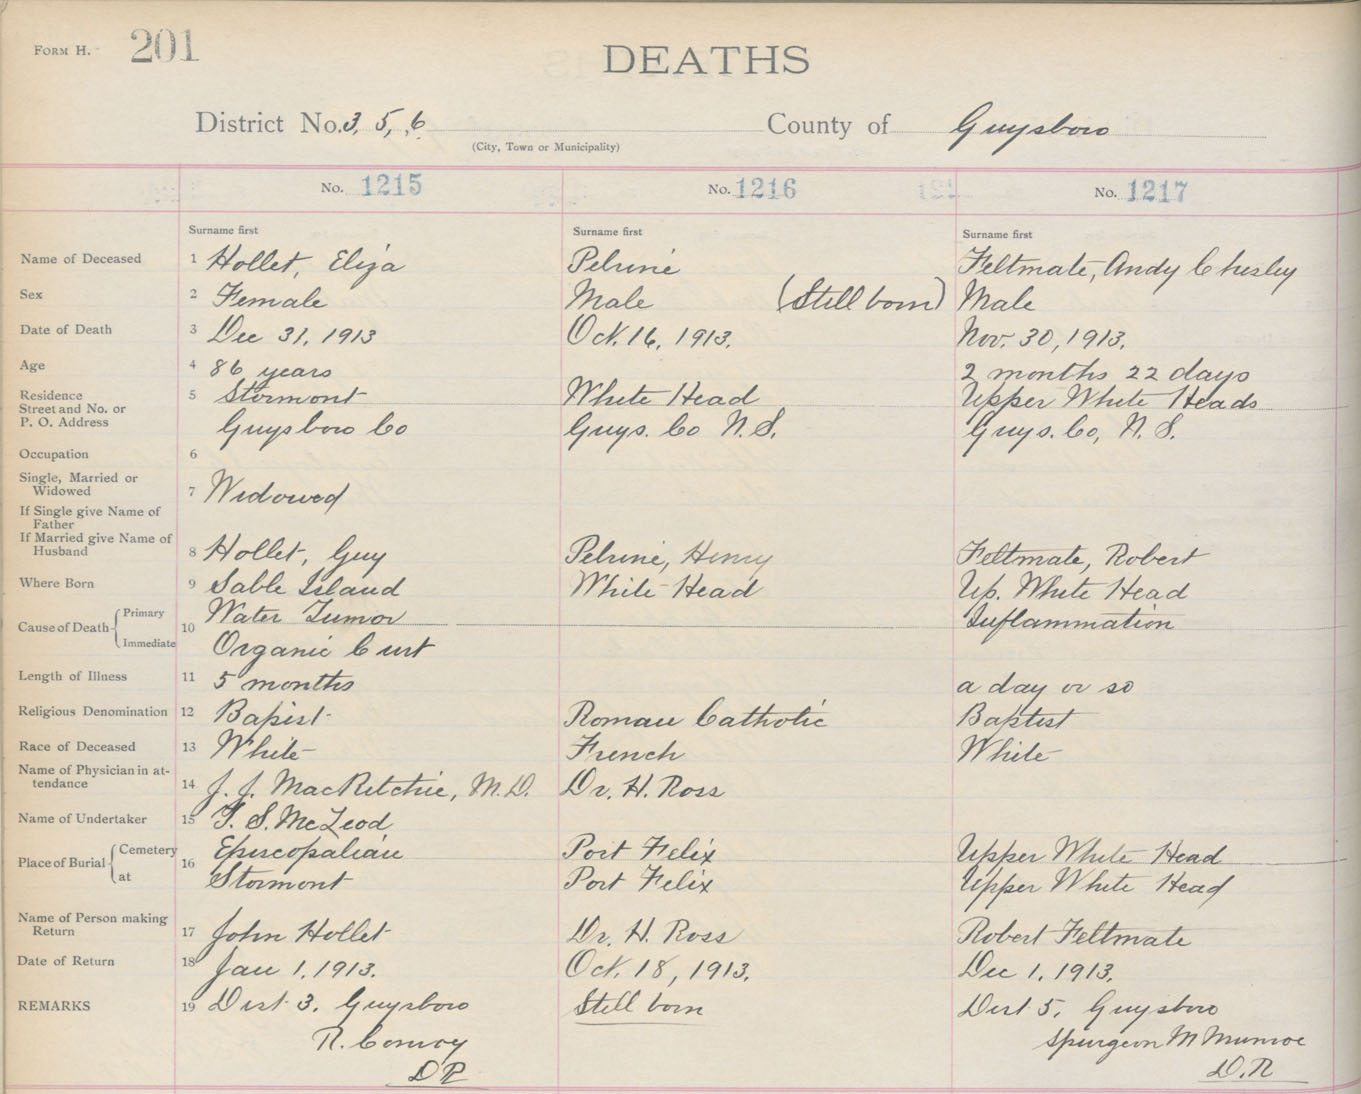 FORM H. 201
DEATHS
District No. 3, 5, 6 County of Guysboro
(City, Town or Municipality)
No. 1215 No. 1216 No. 1217
Surname first Surname first Surname first
Name of Deceased 1 Hollet, Eliza Pelrine Feltmate, Andy Chesley
Sex 2 Female Male (Still born) Male
Date of Death 3 Dec 31, 1913 Oct. 16, 1913. Nov. 30, 1913.
Age 4 86 years 2 months 22 days
Residence 5 Stormont White Head Upper White Heads
Street and No. or
P. O. Address Guysboro Co Guys. Co N.S. Guys. Co, N. S.
Occupation 6
Single, Married or
Widowed 7 Widowed
If Single give Name of
Father
If Married give Name of
Husband 8 Hollet, Guy Pelrine, Henry Feltmate, Robert
Where Born 9 Sable Island White Head Up. White Head
Cause of Death Primary 10 Water Tumor Inflammation
Immediate Organic
Length of Illness 11 5 months a day or so
Religious Denomination 12 Bapist Roman Catholic Baptist
Race of Deceased 13 White French White
Name of Physician in at-
tendance 14 J. J. MacRitchie, M.D. Dr. H. Ross
Name of Undertaker 15 S. McLeod
Place of Burial Cemetery 16 Episcopalian Port Felix Upper White Head
at Stormont Port Felix Upper White Head
Name of Person making
Return 17 John Hollet Dr. H. Ross Robert Feltmate
Date of Return 18 Jan 1, 1913. Oct. 18, 1913. Dec 1, 1913.
REMARKS 19 Dist 3, Guysboro Still born Dist 5, Guysboro
R. Conroy Spurgeon M Munroe
DR D.R